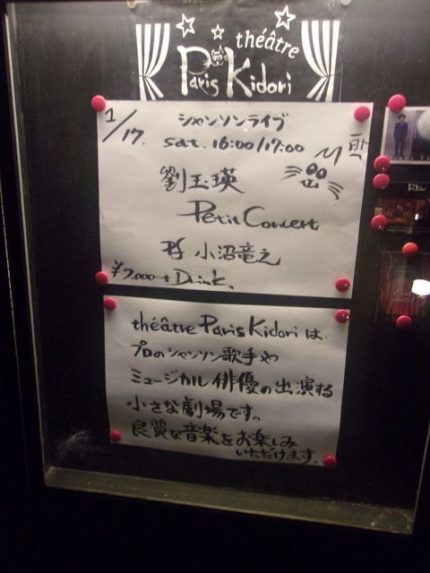 théâtre
Paris Kidori
シャンソンライブ
1/17. sat. 16:00/17:00
劉玉瑛
Petit Concert
小沼竜之
¥2,000+Drink.
théâtre Paris Kidori は
プロのシャンソン歌手や
ミュージカル俳優の出演する
小さな劇場です。
良質な音楽をお楽しみ
いただけます。